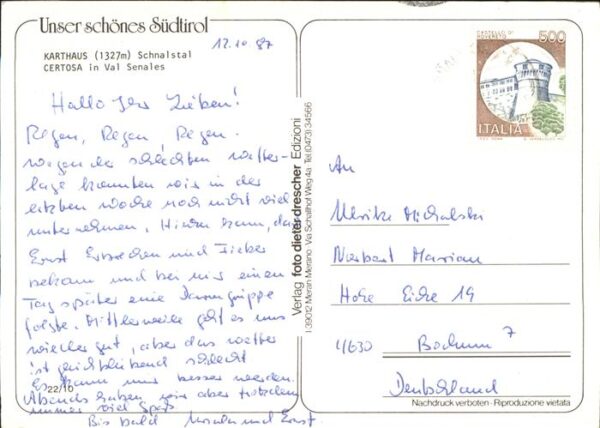 Unser schönes Südtirol
12.10.87
KARTHAUS (1327m) Schnalstal
CERTOSA in Val Senales
Hallo Ihr Lieben!
Regen, Regen, Regen.
Wegen der schlechten Wetter-
lage konnten wir in der
letzten Woche noch nicht viel
unternehmen. Hinzu kam, daß
Ernst Erbrechen und Fieber
bekam und bei mir einen
Tag später eine Darmgrippe
folgte. Mittlerweile geht es uns
wieder gut, aber das Wetter
ist gleichbleibend schlecht
Es kann nur besser werden.
Abends haben wir aber trotzdem
immer viel Spaß.
Bis bald Ursula und Ernst.
22/10
Verlag foto dieter drescher Edizioni
I-39012 Meran Merano · Via Schaffhof Weg 4a · Tel. (0473) 34566
CASTELLO DI
ROVERETO
500
ITALIA
An
Ulrike Michalski
Norbert Marian
Hohe Eiche 19
4630 Bochum 7
Deutschland
Nachdruck verboten - Riproduzione vietata